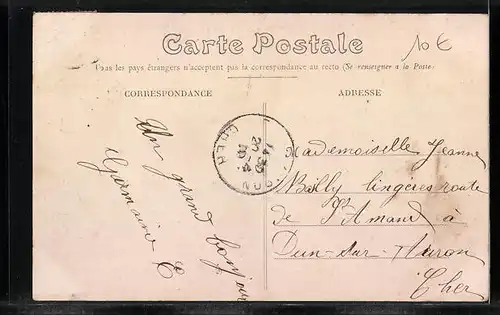 Carte Postale
10 €
Tous les pays étrangers n'acceptent pas la correspondance au recto (Se renseigner à la Poste)
CORRESPONDANCE
ADRESSE
Un grand bonjour
Germaine C
CHER
Mademoiselle Jeanne
Billy lingères route
de St Amand à
Dun-sur-Auron
Cher